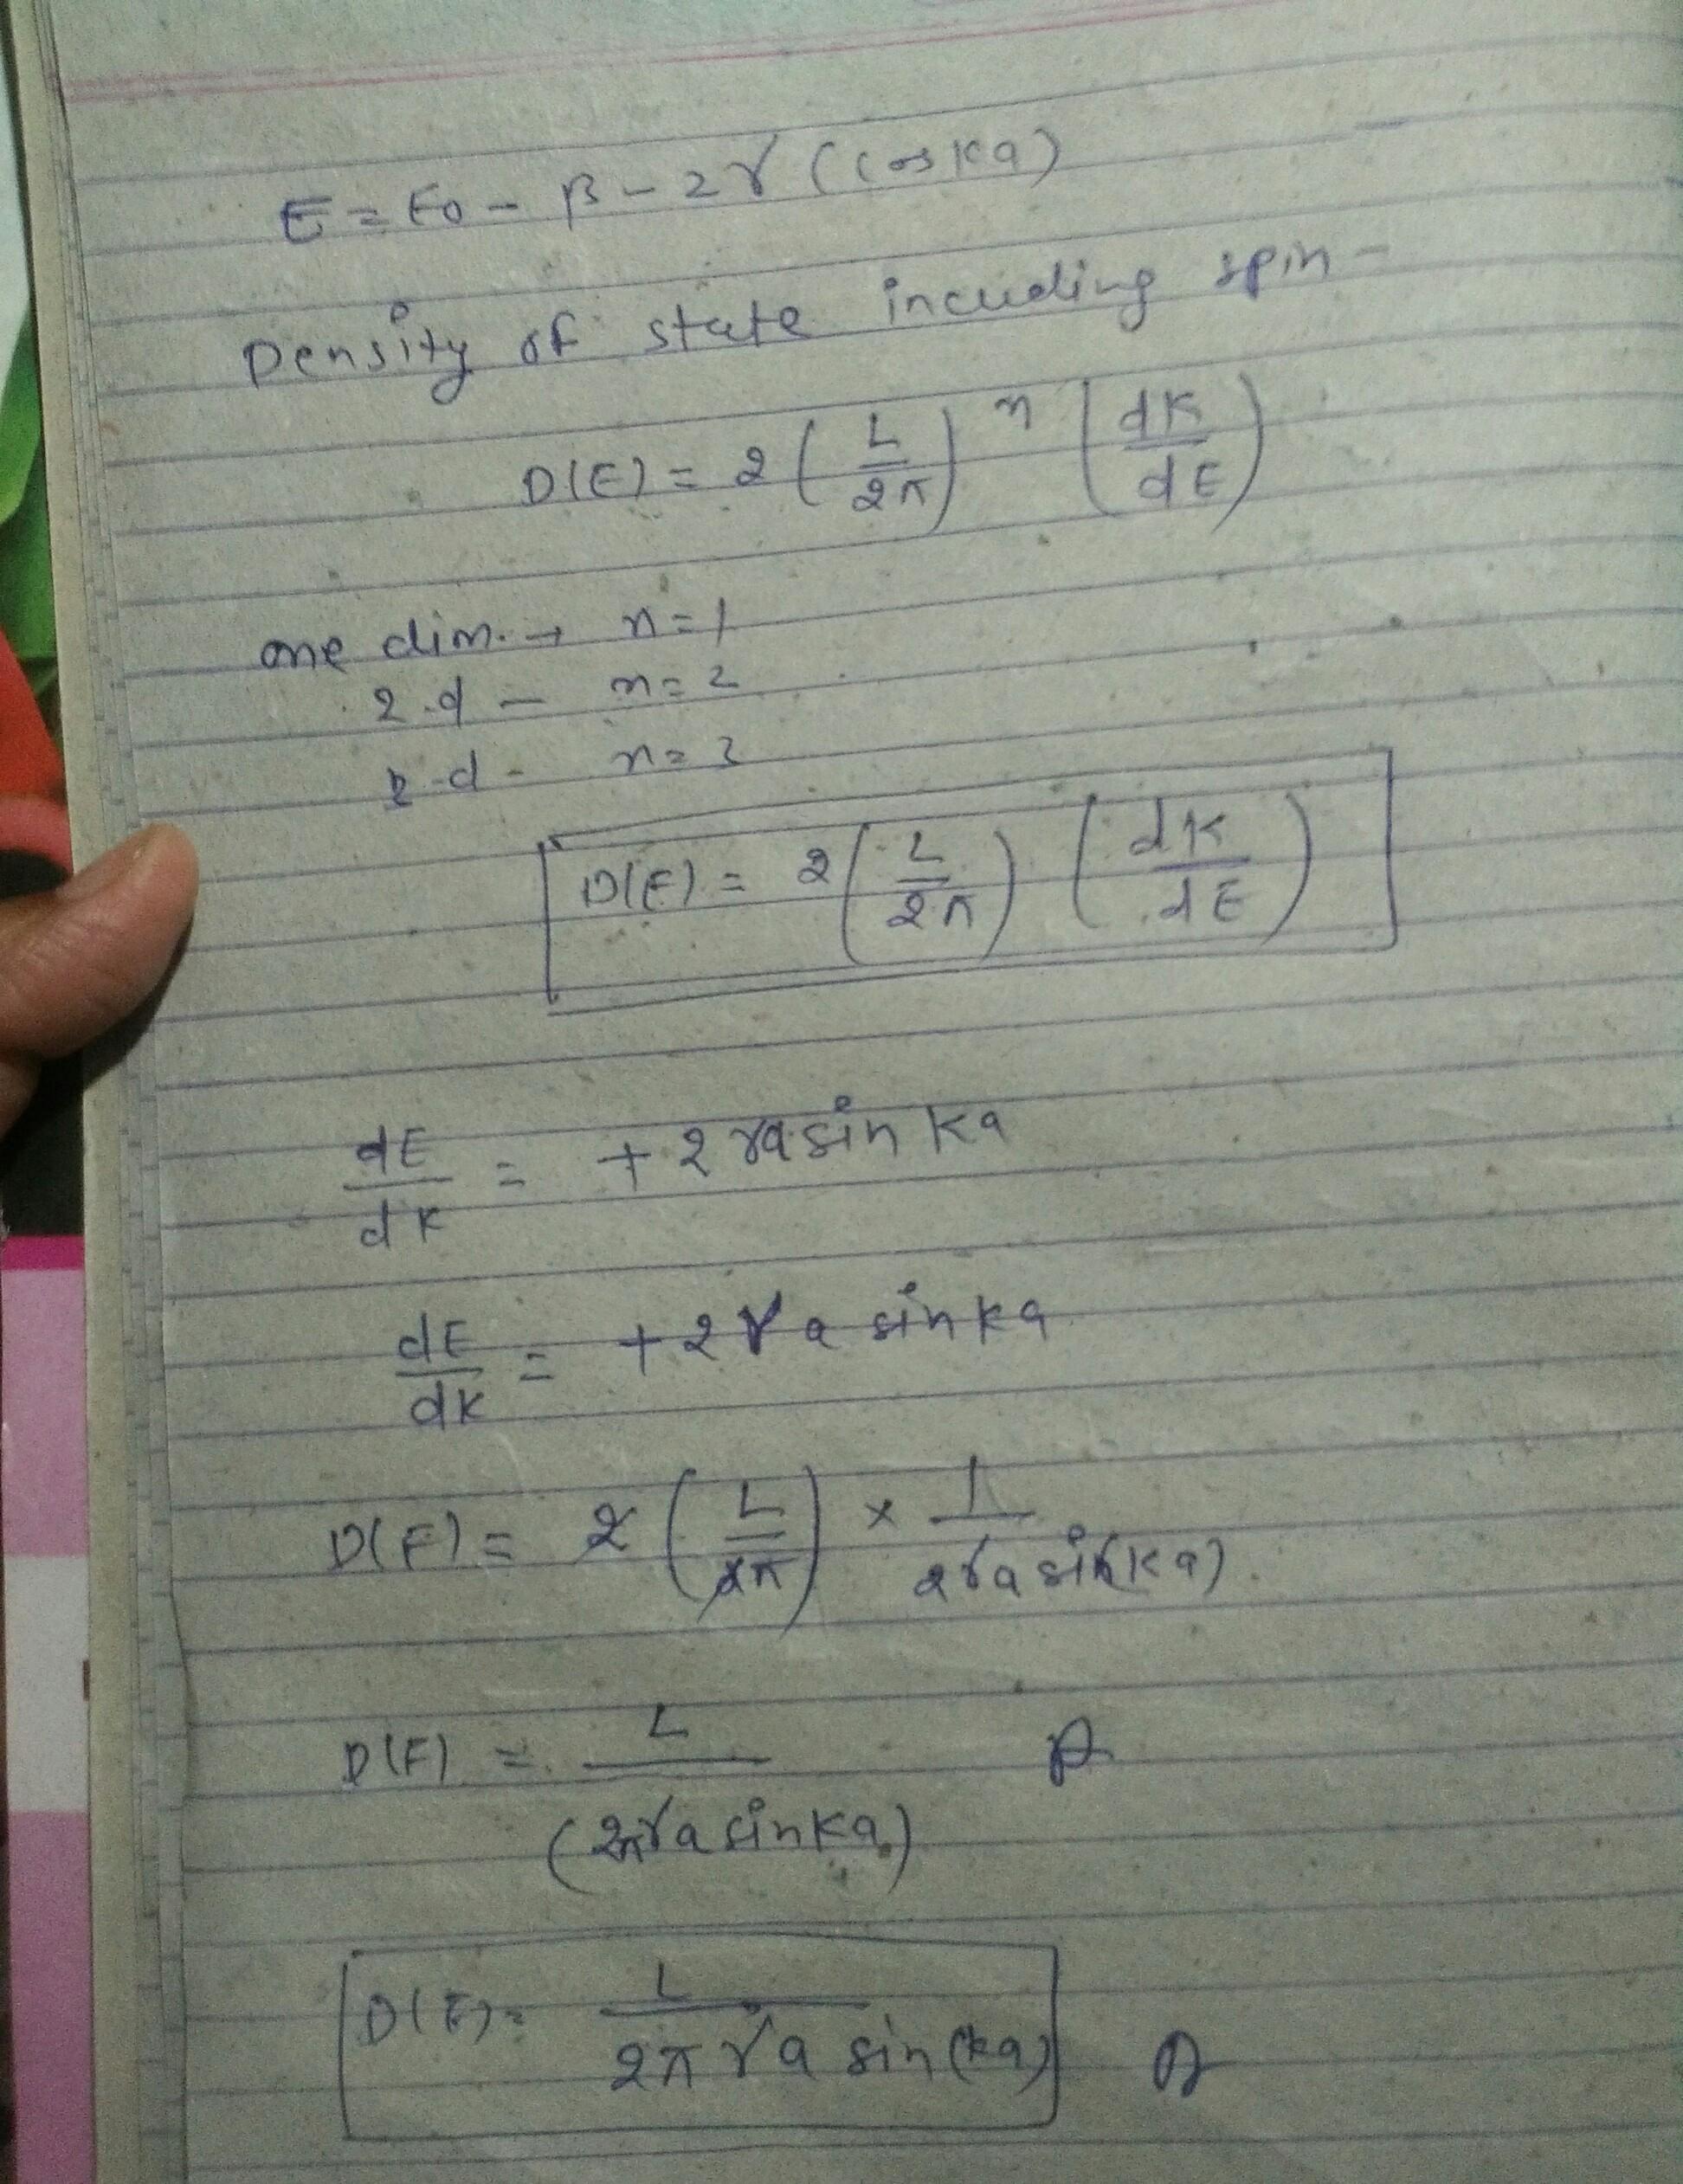 E = E0 - β - 2γ (cos Ka)
Density of state including spin -
D(E) = 2 (L/2π)^n (dK/dE)
one dim. → n = 1
2.d - n = 2
3-d - n = 3
D(E) = 2 (L/2π) (dK/dE)
dE/dK = + 2γa sin Ka
dE/dK = + 2γ a sin ka
D(E) = 2 (L/2π) × 1/2γa sin(Ka)
D(E) = L/(2πγa sin Ka)
D(E) = L/2πγa sin(ka)